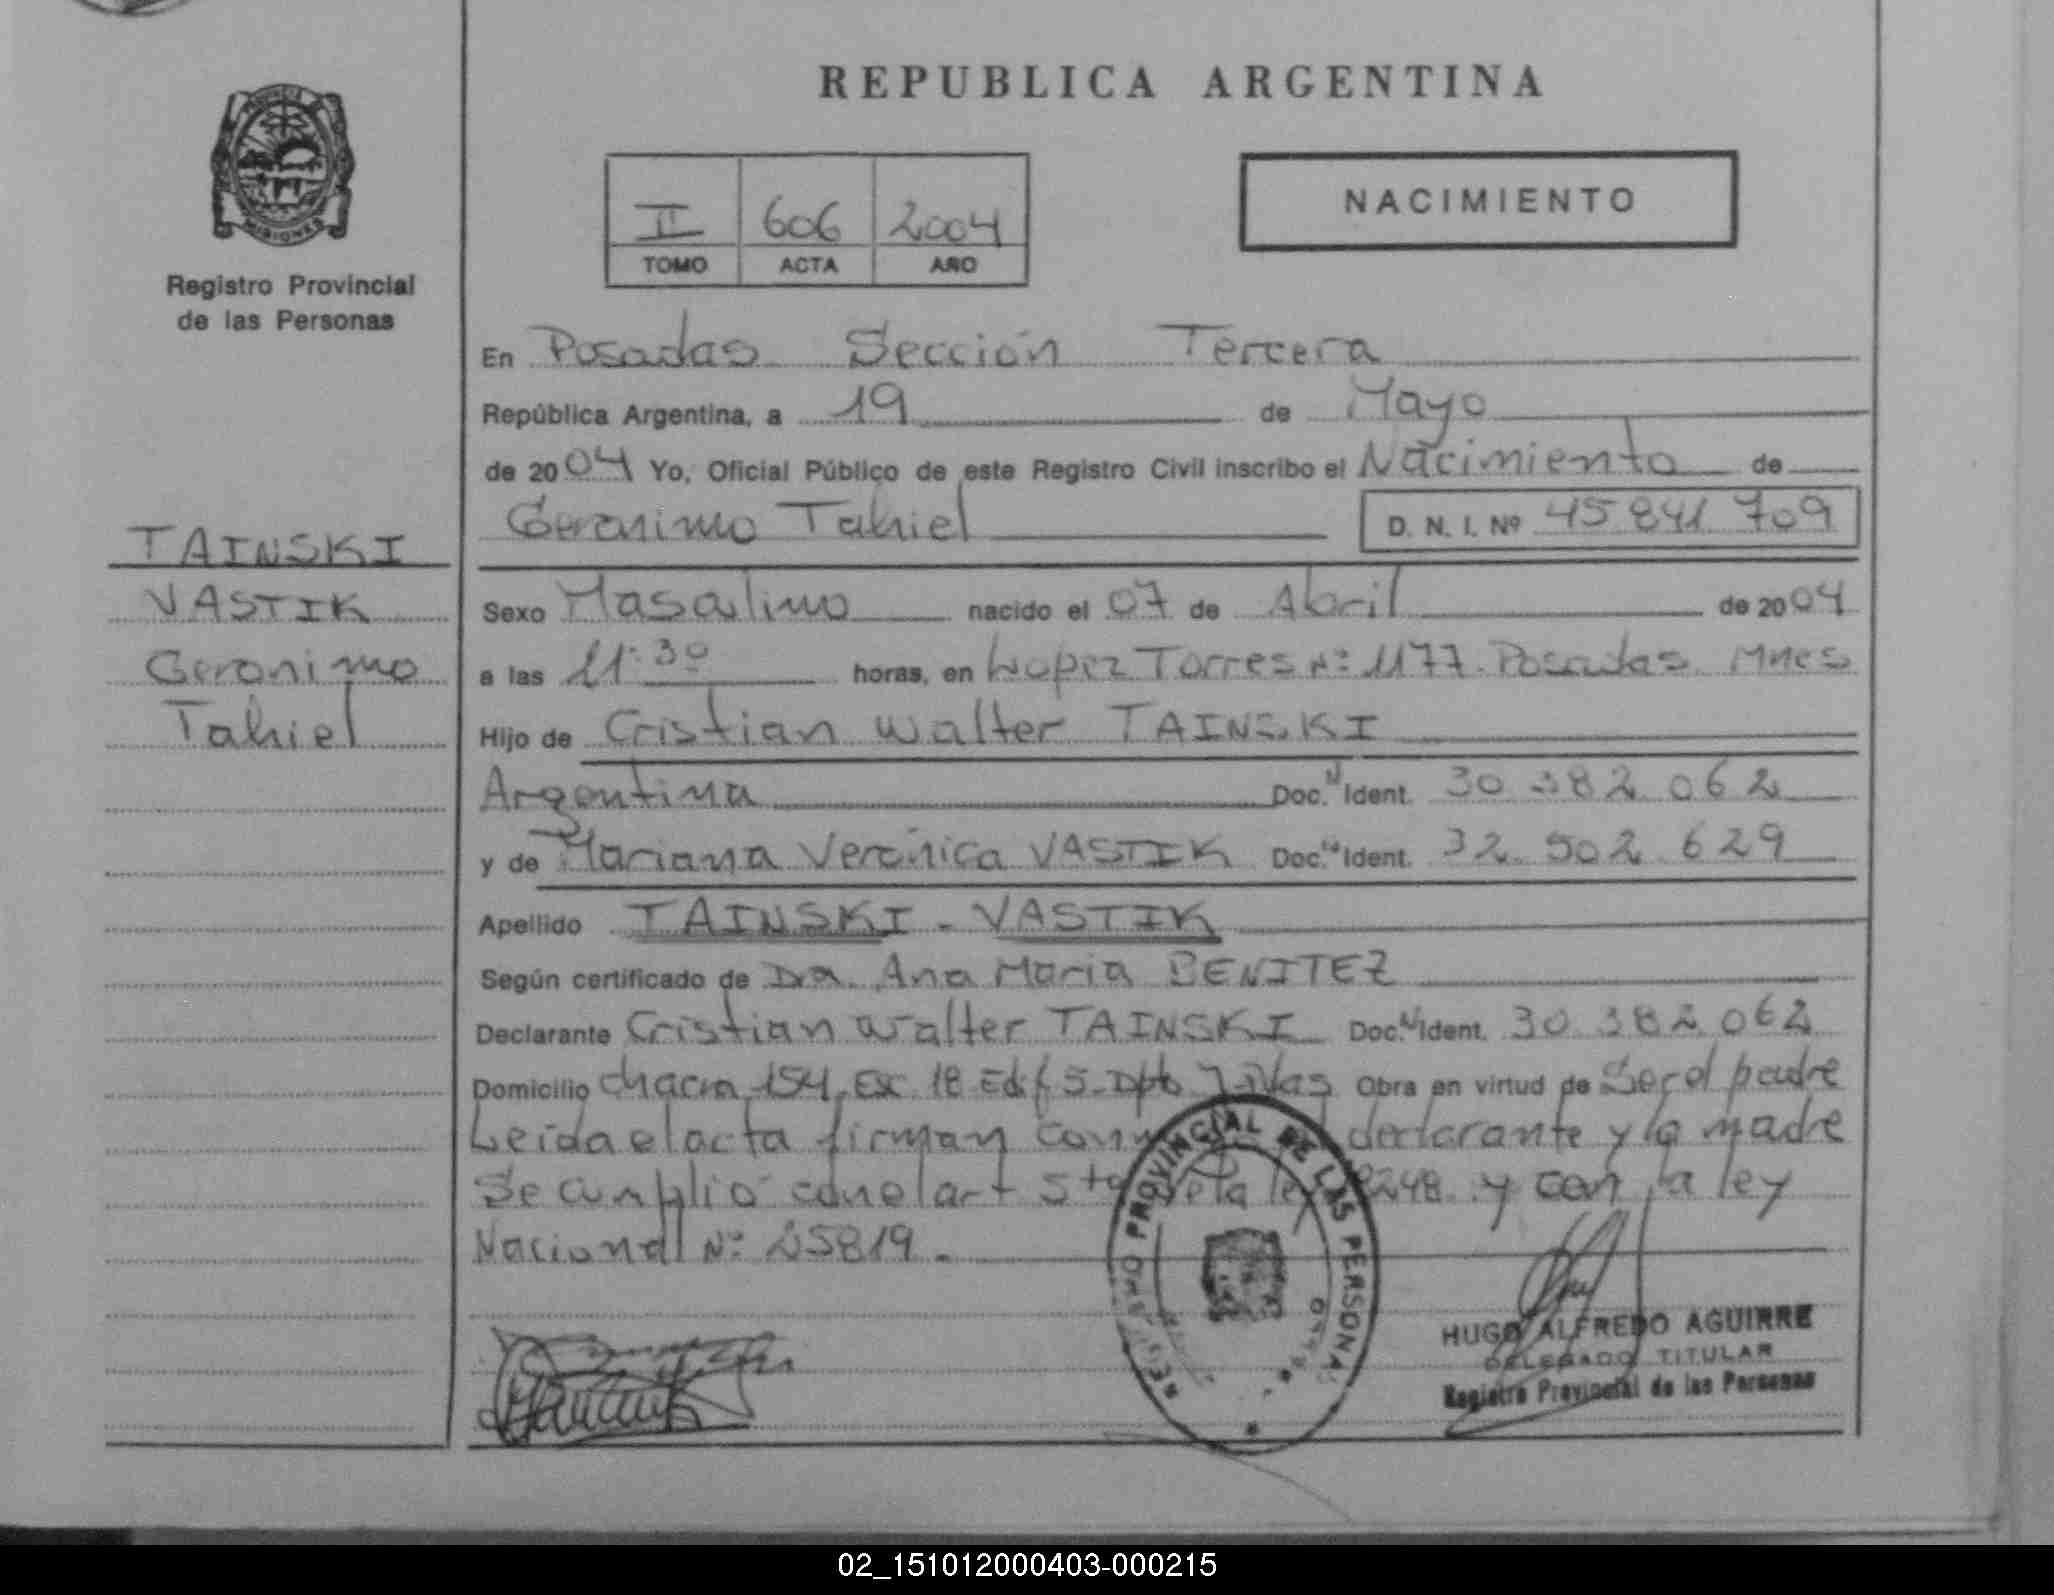 REPUBLICA ARGENTINA
MISIONES
Registro Provincial
de las Personas
II 606 2004
TOMO ACTA AÑO
NACIMIENTO
En Posadas Sección Tercera
República Argentina, a 19 de Mayo
de 2004 Yo, Oficial Público de este Registro Civil inscribo el Nacimiento de
Geronimo Tahiel D. N. I. Nº 45 841 709
TAINSKI
VASTIK
Geronimo
Tahiel
Sexo Masculino nacido el 07 de Abril de 2004
a las 11:30 horas, en Lopez Torres Nº 1177. Posadas Mnes
Hijo de Cristian Walter TAINSKI
Argentina Doc. N Ident. 30 382 062
y de Mariana Verónica VASTIK Doc. N Ident. 32. 502. 629
Apellido TAINSKI - VASTIK
Según certificado de Dra. Ana Maria BENITEZ
Declarante Cristian Walter TAINSKI Doc. N Ident. 30 382 062
Domicilio chacra 154 Esc 18 Edif 5 Dpto Obra en virtud de Ser el padre
Leida el acta firman declarante y la madre
Se cumplió con el art 5to de la ley 18248 y con la ley
Nacional Nº 25819.
REGISTRO PROVINCIAL DE LAS PERSONAS
HUGO ALFREDO AGUIRRE
DELEGADO TITULAR
Registro Provincial de las Personas
02_151012000403-000215